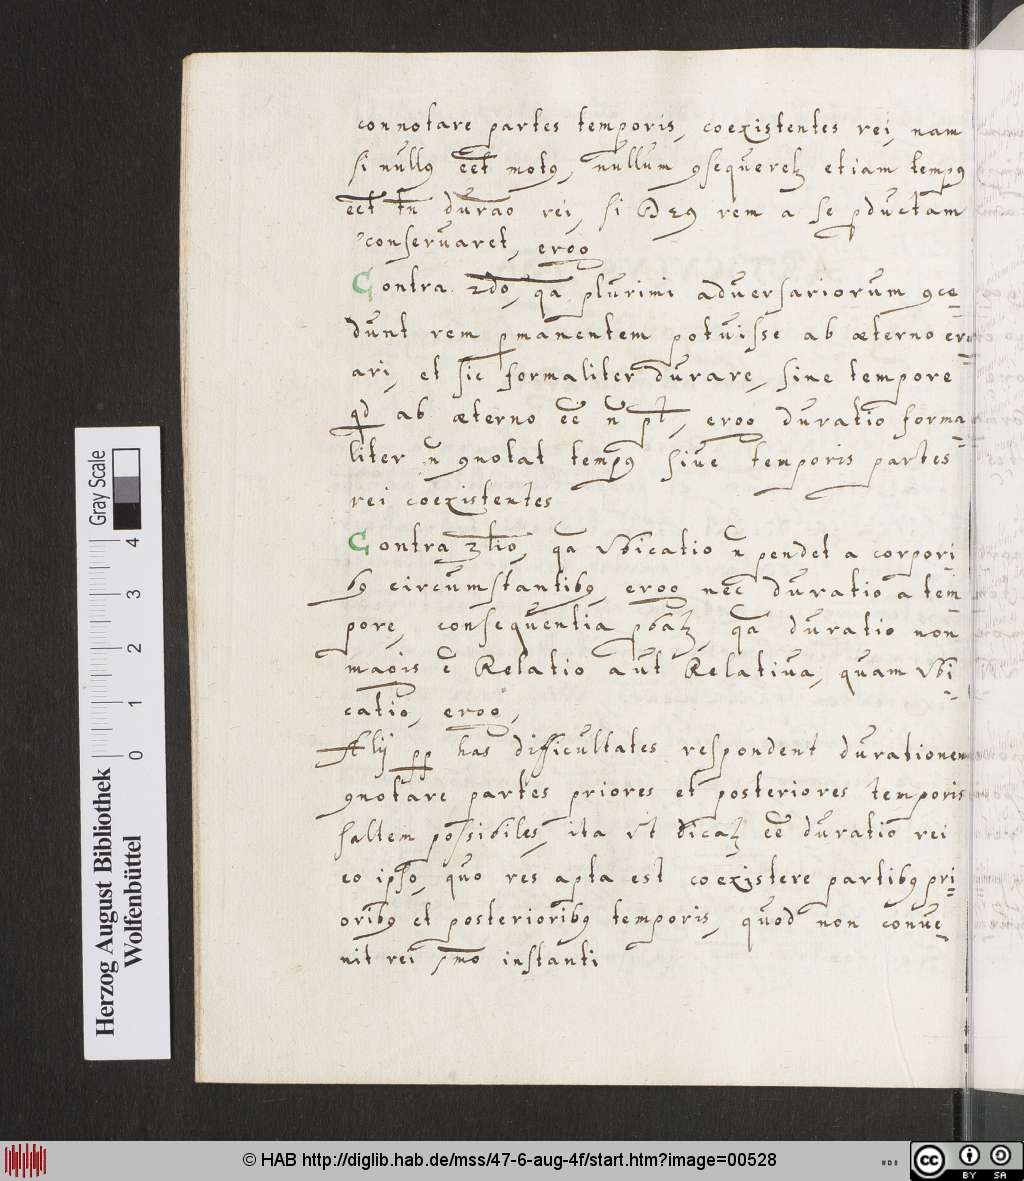 connotare partes temporis, coexistentes rei, nam
si nullꝰ eēt motꝰ, nullum ꝯsequeretꝫ etiam tempꝰ
eēt tn̄ durāo rei, si Deꝰ rem a se ꝓductam
conseruaret, ergo
Contra 2do, qa plurimi aduersariorum ꝯce-
dunt rem ꝑmanentem potuisse ab æterno cre-
ari, et sic formaliter durare, sine tempore
qd ab æterno eē n̄ pt, ergo duratio forma-
liter n̄ ꝯnotat tempꝰ siue temporis partes
rei coexistentes
Contra 3tio, qa vbicatio n̄ pendet a corpori-
bꝰ circumstantibꝰ, ergo nec duratio a tem-
pore, consequentia pbatꝫ, qa duratio non
magis ē Relatio aut Relatiua, quam vbi-
catio, ergo,
Alij ꝓꝑ has difficultates respondent durationem
ꝯnotare partes priores et posteriores temporis
saltem possibiles, ita vt dicatꝫ eē duratio rei
eo ipso, quo res apta est coexistere partibꝰ pri-
oribꝰ et posterioribꝰ temporis, quod non conue-
nit rei pmo instanti
Herzog August Bibliothek
Wolfenbüttel
Gray Scale
0 1 2 3 4
© HAB http://diglib.hab.de/mss/47-6-aug-4f/start.htm?image=00528
cc BY SA